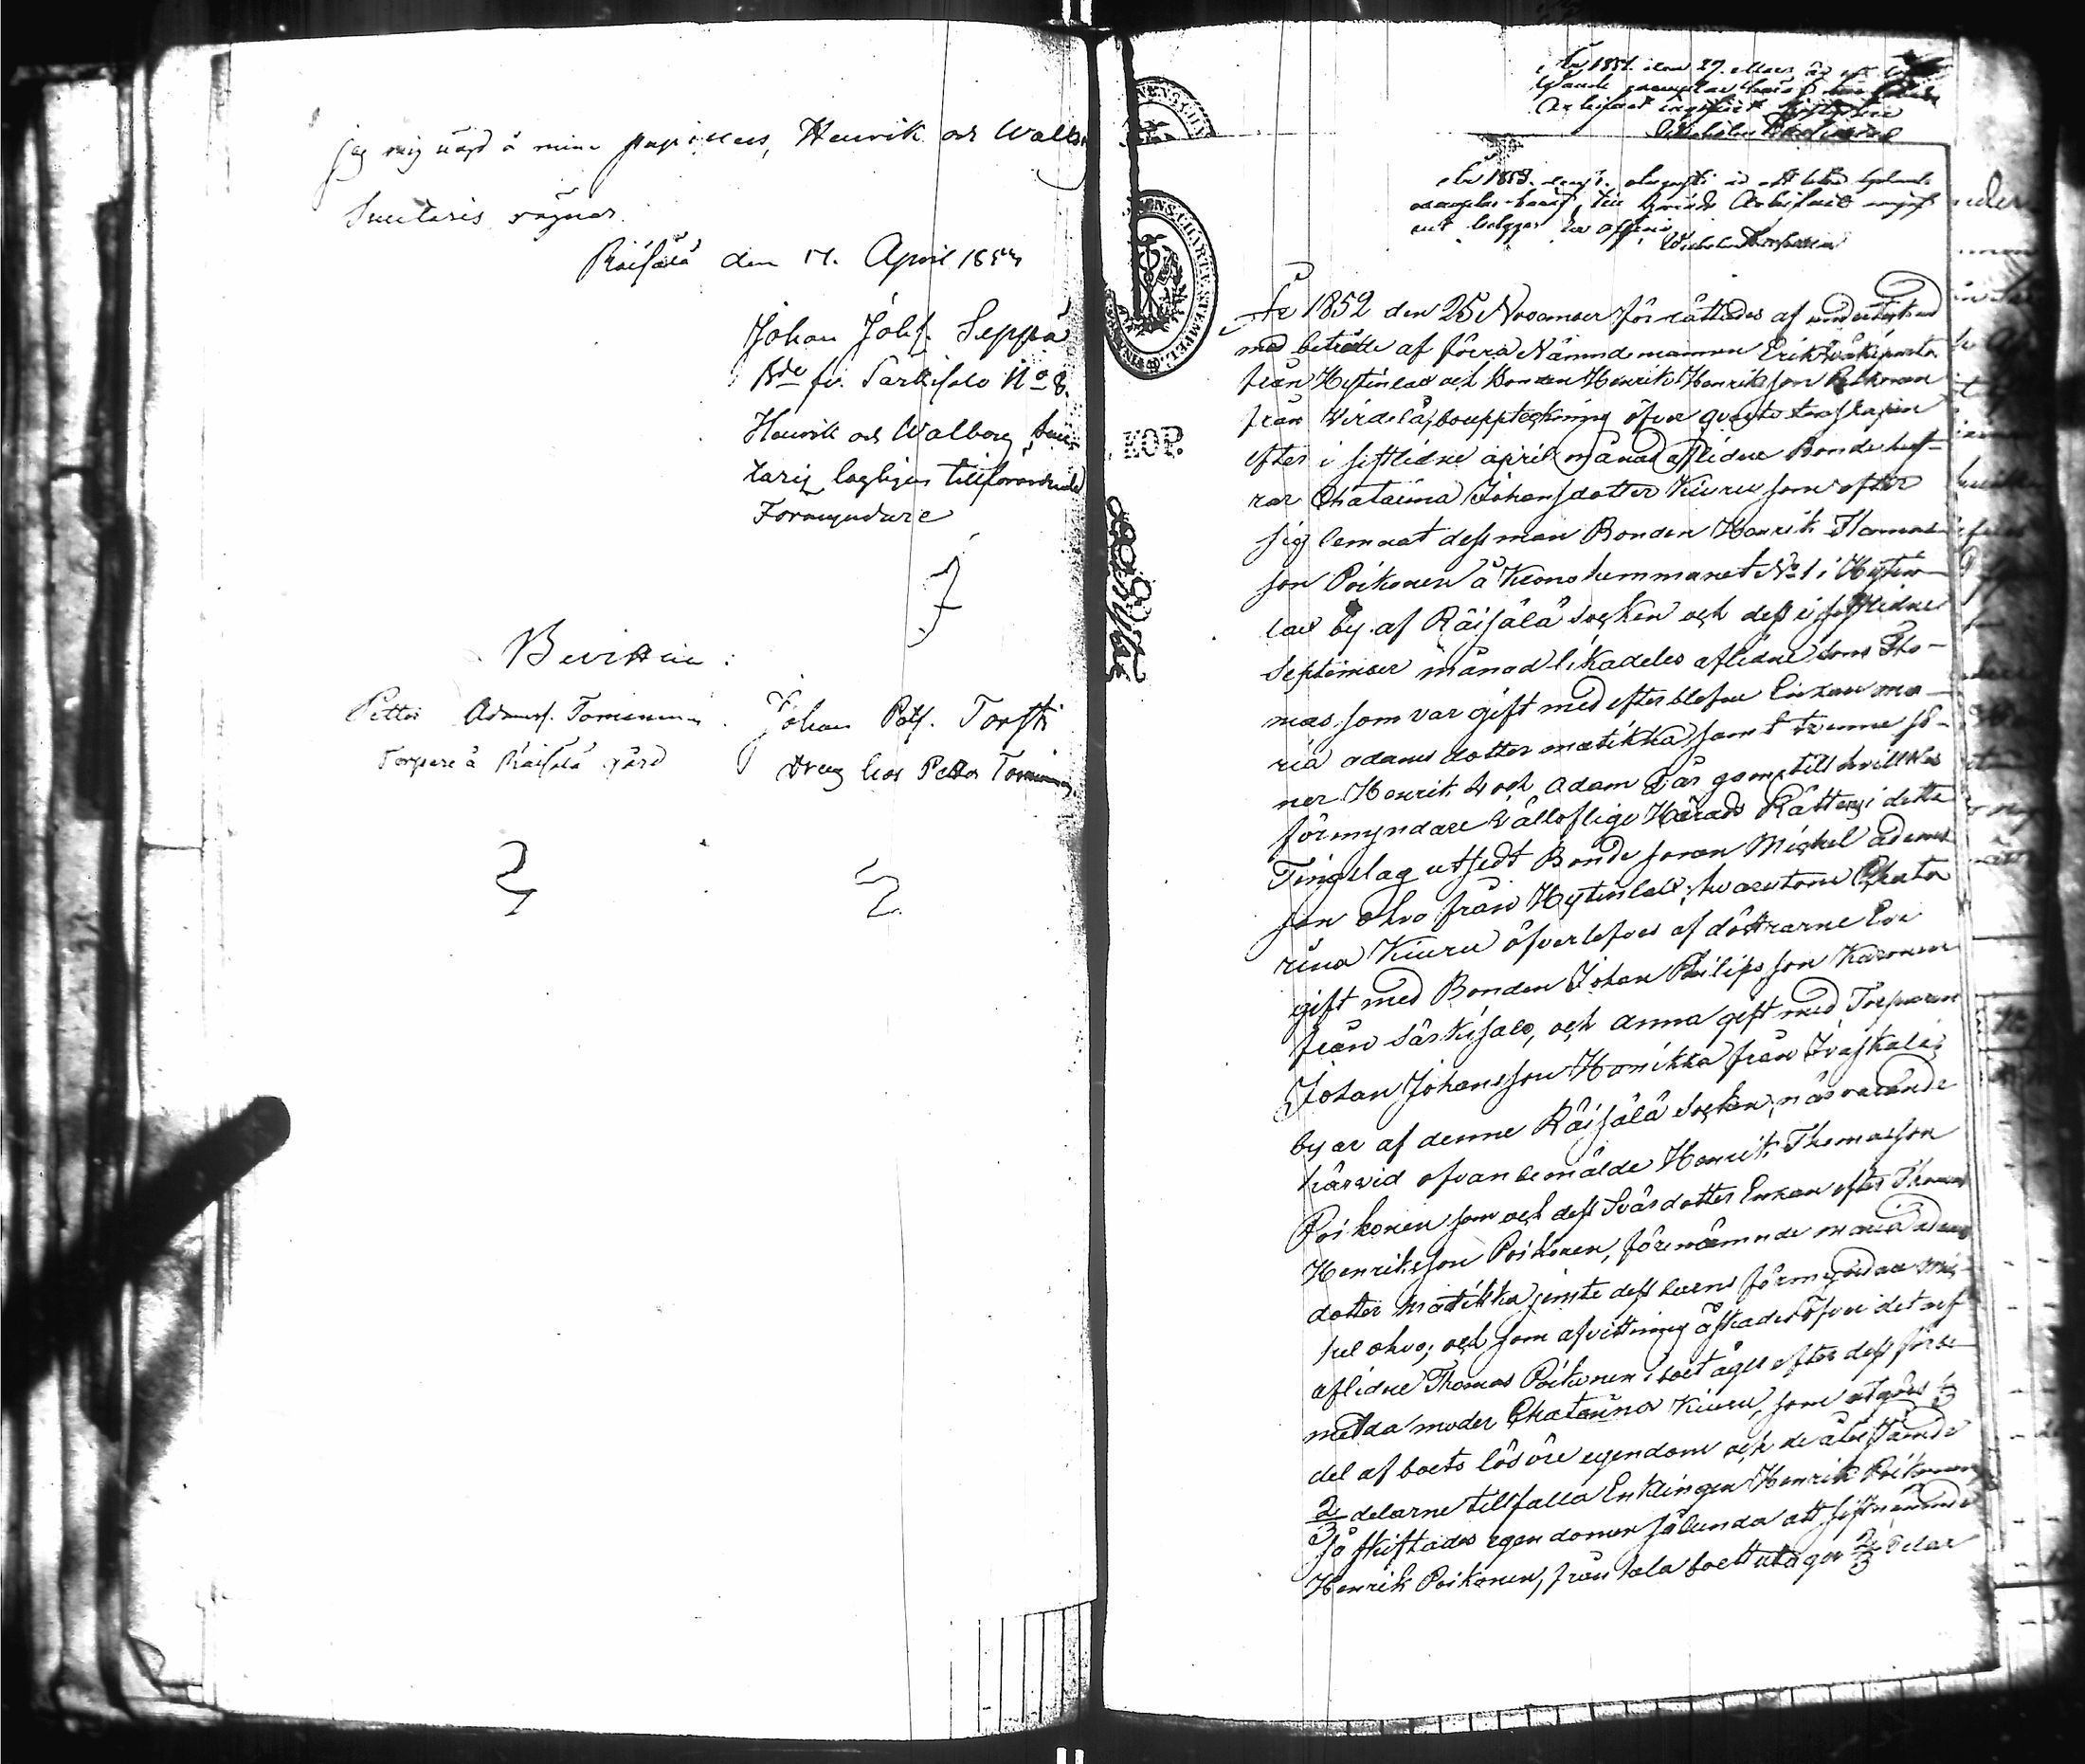 jag mig nögd å mina pupillers, Henrik och Walb
Suutaris vägnar.
Räisälä den 17. April 1854
Johan Johs. Seppä
Bde fr. Särkisalo No 8.
Henrik och Walborg Suu-
taris lagligen tillförordnade
Förmyndare
Bevittna:
Petter Adamss. Tominen
Torpare å Räisälä gård
Johan Torsti
Dreng hos Petter Tominen
År 1852 den 25 November förrättades af undertecknad
med biträde af förra Nämndemannen Erik
från Hytinlax och Bonden Henrik Henriksson
från bouppteckning öfver qvarlotenskapen
efter i sistlidne april månad aflidne Bonde hust-
rar Chatarina Johansdotter Kiuru som efter
sig lemnat dess man Bonden Henrik Thomas-
son Poikonen å Kronohemmanet No 1 i Hytin-
lax by af Räisälä Socken och dess i sistlidne
September månad likadeles aflidne sons Tho-
mas, som var gift med efterblefne Enkan ma-
ria adamsdotter matikka samt tvenne sö-
ner Henrik 4 och adam 2 år gamla, till hvilkes
förmyndare Vällofliga Härads Rätten i detta
Tingslag utsedt Bonde sonen Michel adams
son ohvo från Hytinlax; hvarutom Chata
rina Kiuru öfverlefves af döttrarne Eva
gift med Bonden Johan Philipsson Karonen
från Särkisalo, och anna gift med Torparen
Johan Johansson Hanikka från Ivaskala;
byar af denne Räisälä Socken; närvarande
härvid ofvanbemälde Henrik Thomasson
Poikonen som och dess Svärdotter Enkan efter Thomas
Henriksson Poikonen, förenämnde maria adams
dotter matikka jemte dess barns förmyndare mic-
kel ohvo; och som afvittning äskades öfver det arf
aflidne Thomas Poikonen i boet äger efter dess förbe-
melda moder Chatarina Kiuru, som utgörs 1/3
del af boets lösöre egendom och de återstående
2/3 delarne tillfalla Enklingen Henrik Poikonen
så skiftades egendomen sålunda att sistnämnde
Henrik Poikonen, från hela boet uttager 2/3 delar
KOP.